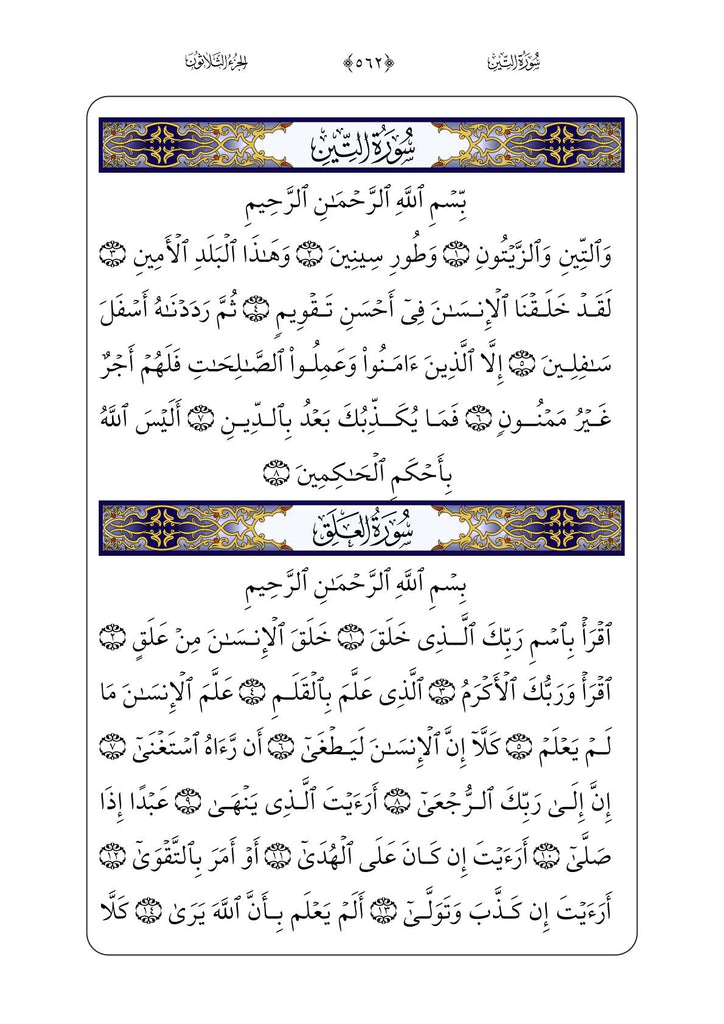 سُورَةُ التِّينِ ﴿٥٦٢﴾ الجُزءُ الثَّلَاثُونَ
سُورَةُ التِّينِ
بِّسۡمِ ٱللَّهِ ٱلرَّحۡمَٰنِ ٱلرَّحِيمِ
وَٱلتِّينِ وَٱلزَّيۡتُونِ ١ وَطُورِ سِينِينَ ٢ وَهَٰذَا ٱلۡبَلَدِ ٱلۡأَمِينِ ٣
لَقَدۡ خَلَقۡنَا ٱلۡإِنسَٰنَ فِيٓ أَحۡسَنِ تَقۡوِيمٖ ٤ ثُمَّ رَدَدۡنَٰهُ أَسۡفَلَ
سَٰفِلِينَ ٥ إِلَّا ٱلَّذِينَ ءَامَنُواْ وَعَمِلُواْ ٱلصَّٰلِحَٰتِ فَلَهُمۡ أَجۡرٌ
غَيۡرُ مَمۡنُونٖ ٦ فَمَا يُكَذِّبُكَ بَعۡدُ بِٱلدِّينِ ٧ أَلَيۡسَ ٱللَّهُ
بِأَحۡكَمِ ٱلۡحَٰكِمِينَ ٨
سُورَةُ العَلَقِ
بِسۡمِ ٱللَّهِ ٱلرَّحۡمَٰنِ ٱلرَّحِيمِ
ٱقۡرَأۡ بِٱسۡمِ رَبِّكَ ٱلَّذِي خَلَقَ ١ خَلَقَ ٱلۡإِنسَٰنَ مِنۡ عَلَقٍ ٢
ٱقۡرَأۡ وَرَبُّكَ ٱلۡأَكۡرَمُ ٣ ٱلَّذِي عَلَّمَ بِٱلۡقَلَمِ ٤ عَلَّمَ ٱلۡإِنسَٰنَ مَا
لَمۡ يَعۡلَمۡ ٥ كَلَّآ إِنَّ ٱلۡإِنسَٰنَ لَيَطۡغَىٰٓ ٦ أَن رَّءَاهُ ٱسۡتَغۡنَىٰٓ ٧
إِنَّ إِلَىٰ رَبِّكَ ٱلرُّجۡعَىٰٓ ٨ أَرَءَيۡتَ ٱلَّذِي يَنۡهَىٰ ٩ عَبۡدًا إِذَا
صَلَّىٰٓ ١٠ أَرَءَيۡتَ إِن كَانَ عَلَى ٱلۡهُدَىٰٓ ١١ أَوۡ أَمَرَ بِٱلتَّقۡوَىٰٓ ١٢
أَرَءَيۡتَ إِن كَذَّبَ وَتَوَلَّىٰٓ ١٣ أَلَمۡ يَعۡلَم بِأَنَّ ٱللَّهَ يَرَىٰ ١٤ كَلَّا